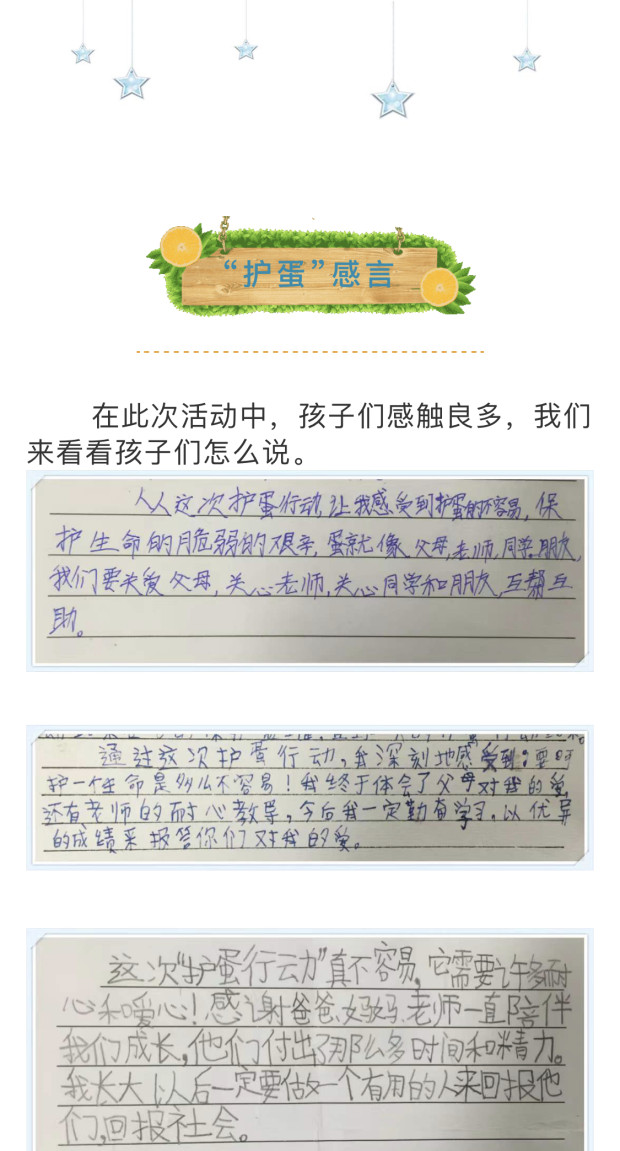 “护蛋”感言
在此次活动中，孩子们感触良多，我们
来看看孩子们怎么说。
人人这次护蛋行动,让我感受到护蛋的不容易,保
护生命的脆弱的艰辛,蛋就像父母,老师,同学,朋友,
我们要关爱父母,关心老师,关心同学和朋友,互帮互
助。
通过这次护蛋行动,我深刻地感受到:要呵
护一个生命是多么不容易!我终于体会了父母对我的爱,
还有老师的耐心教导,今后我一定勤奋学习,以优异
的成绩来报答你们对我的爱。
这次“护蛋行动”真不容易,它需要许多耐
心和暖心!感谢爸爸、妈妈、老师一直陪伴
我们成长,他们付出了那么多时间和精力。
我长大以后一定要做一个有用的人来回报他
们,回报社会。